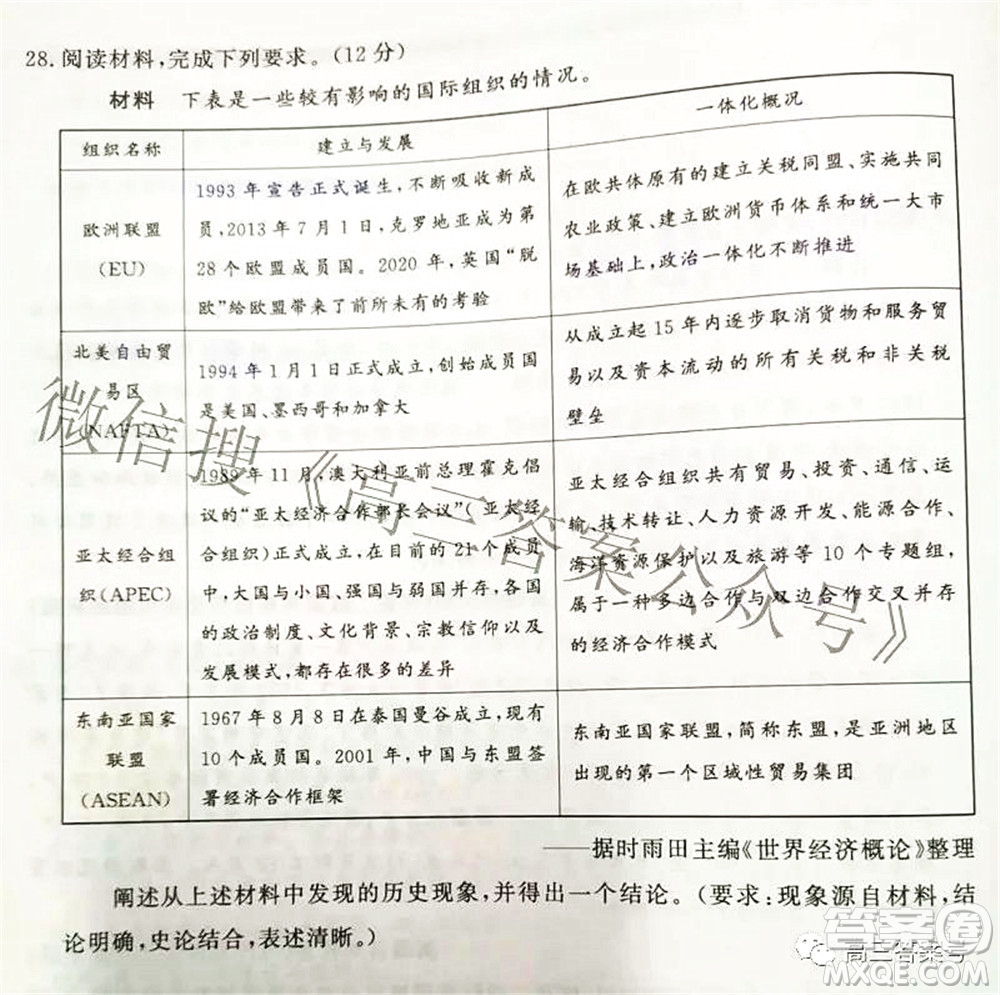 28. 阅读材料,完成下列要求。(12 分)
材料 下表是一些较有影响的国际组织的情况。
组织名称
建立与发展
一体化概况
欧洲联盟
(EU)
1993 年宣告正式诞生,不断吸收新成
员,2013 年 7 月 1 日,克罗地亚成为第
28 个欧盟成员国。2020 年,英国“脱
欧”给欧盟带来了前所未有的考验
在欧共体原有的建立关税同盟、实施共同
农业政策、建立欧洲货币体系和统一大市
场基础上,政治一体化不断推进
北美自由贸
易区
(NAFTA)
1994 年 1 月 1 日正式成立,创始成员国
是美国、墨西哥和加拿大
从成立起 15 年内逐步取消货物和服务贸
易以及资本流动的所有关税和非关税
壁垒
亚太经合组
织(APEC)
1989 年 11 月,澳大利亚前总理霍克倡
议的“亚太经济合作部长会议”(亚太经
合组织)正式成立,在目前的 21 个成员
中,大国与小国、强国与弱国并存,各国
的政治制度、文化背景、宗教信仰以及
发展模式,都存在很多的差异
亚太经合组织共有贸易、投资、通信、运
输、技术转让、人力资源开发、能源合作、
海洋资源保护以及旅游等 10 个专题组,
属于一种多边合作与双边合作交叉并存
的经济合作模式
东南亚国家
联盟
(ASEAN)
1967 年 8 月 8 日在泰国曼谷成立,现有
10 个成员国。2001 年,中国与东盟签
署经济合作框架
东南亚国家联盟,简称东盟,是亚洲地区
出现的第一个区域性贸易集团
——据时雨田主编《世界经济概论》整理
阐述从上述材料中发现的历史现象,并得出一个结论。(要求:现象源自材料,结
论明确,史论结合,表述清晰。)
微信搜《高三答案公众号》
高三答案号
答案圈
MXQE.COM